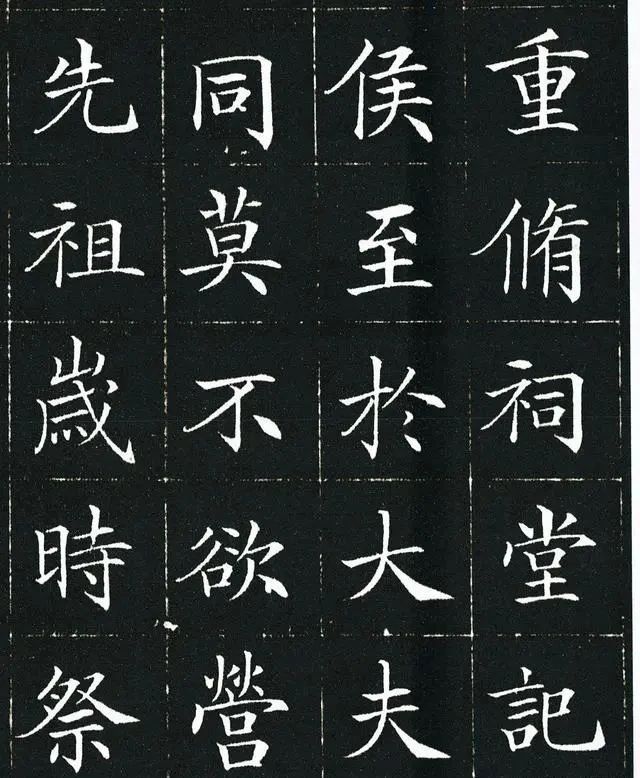 重脩祠堂記
侯至於大夫
同莫不欲營
先祖歲時祭